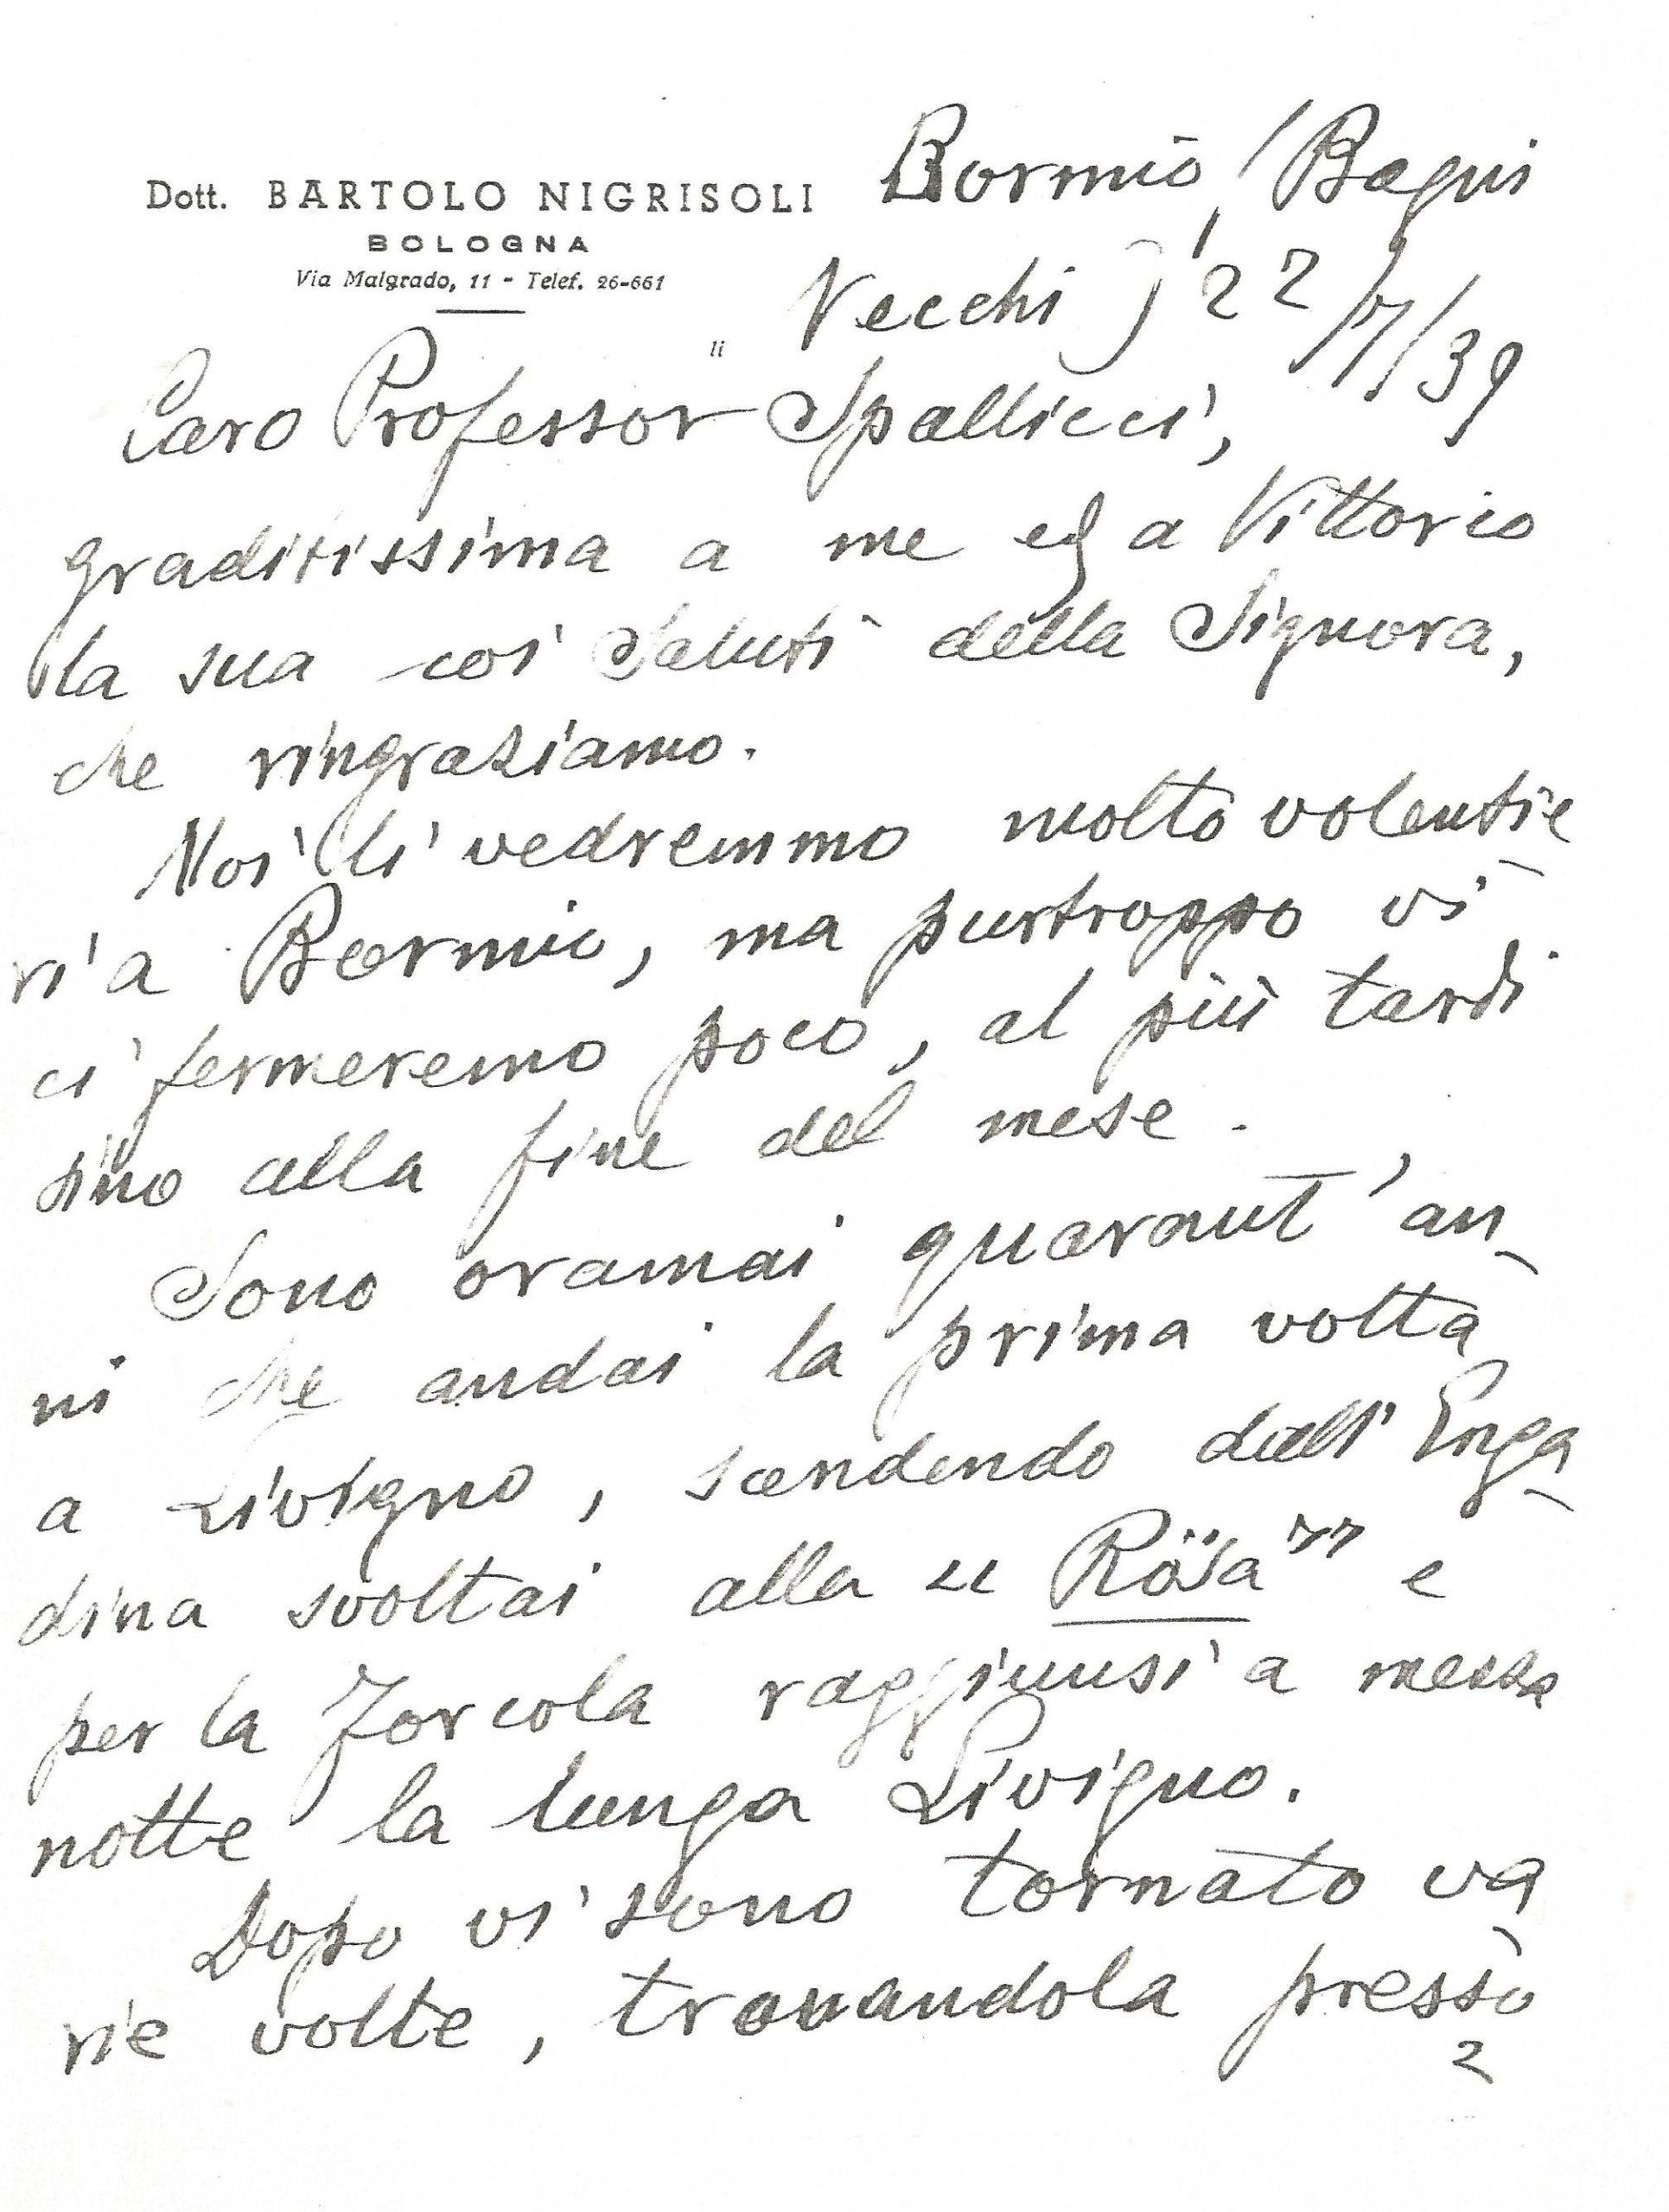 Dott. BARTOLO NIGRISOLI
BOLOGNA
Via Malgrado, 11 - Telef. 26-661
Bormio, (Bagni
Vecchi) 22/7/39
Caro Professor Spallicci,
graditissima a me ed a Vittorio
la sua coi saluti della Signora,
che ringraziamo.
Noi li vedremmo molto volentie-
ri a Bormio, ma purtroppo vi
ci fermeremo poco, al più tardi
sino alla fine del mese.
Sono oramai quarant'an-
ni che andai la prima volta
a Livigno, scendendo dall'Enga-
dina svoltai alla "Rösa" e
per la Forcola raggiunsi a mezza
notte la lunga Livigno.
Dopo vi sono tornato va-
rie volte, trovandola presso
2